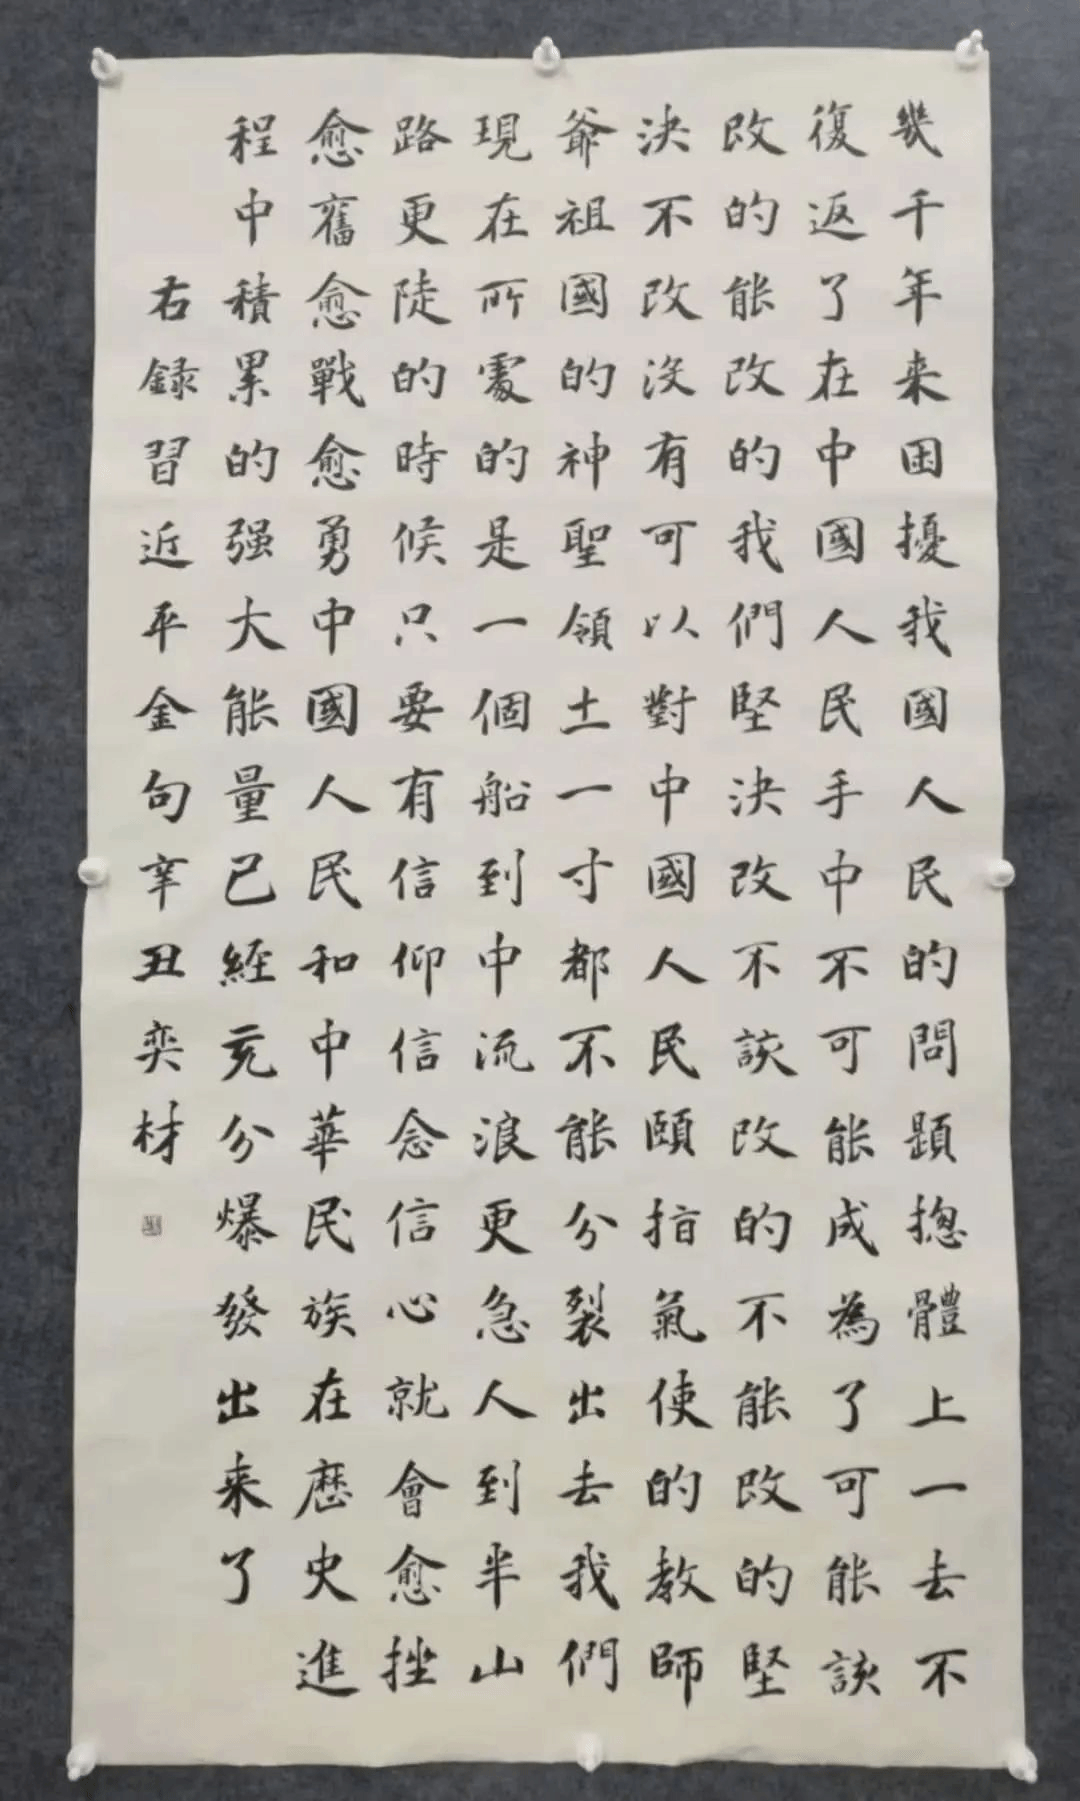 幾千年来困擾我國人民的問題摠體上一去不
復返了在中國人民手中不可能成為了可能該
改的能改的我們堅決改不該改的不能改的堅
決不改沒有可以對中國人民頤指氣使的教師
爺祖國的神聖領土一寸都不能分裂出去我們
現在所處的是一個船到中流浪更急人到半山
路更陡的時候只要有信仰信念信心就會愈挫
愈奮愈戰愈勇中國人民和中華民族在歷史進
程中積累的强大能量已經充分爆發出来了
右録習近平金句辛丑奕材